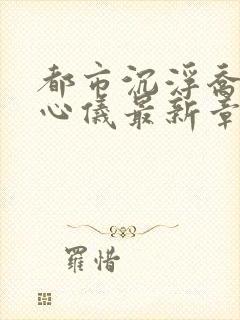 都市沉浮乔
心儀最新章
羅惜